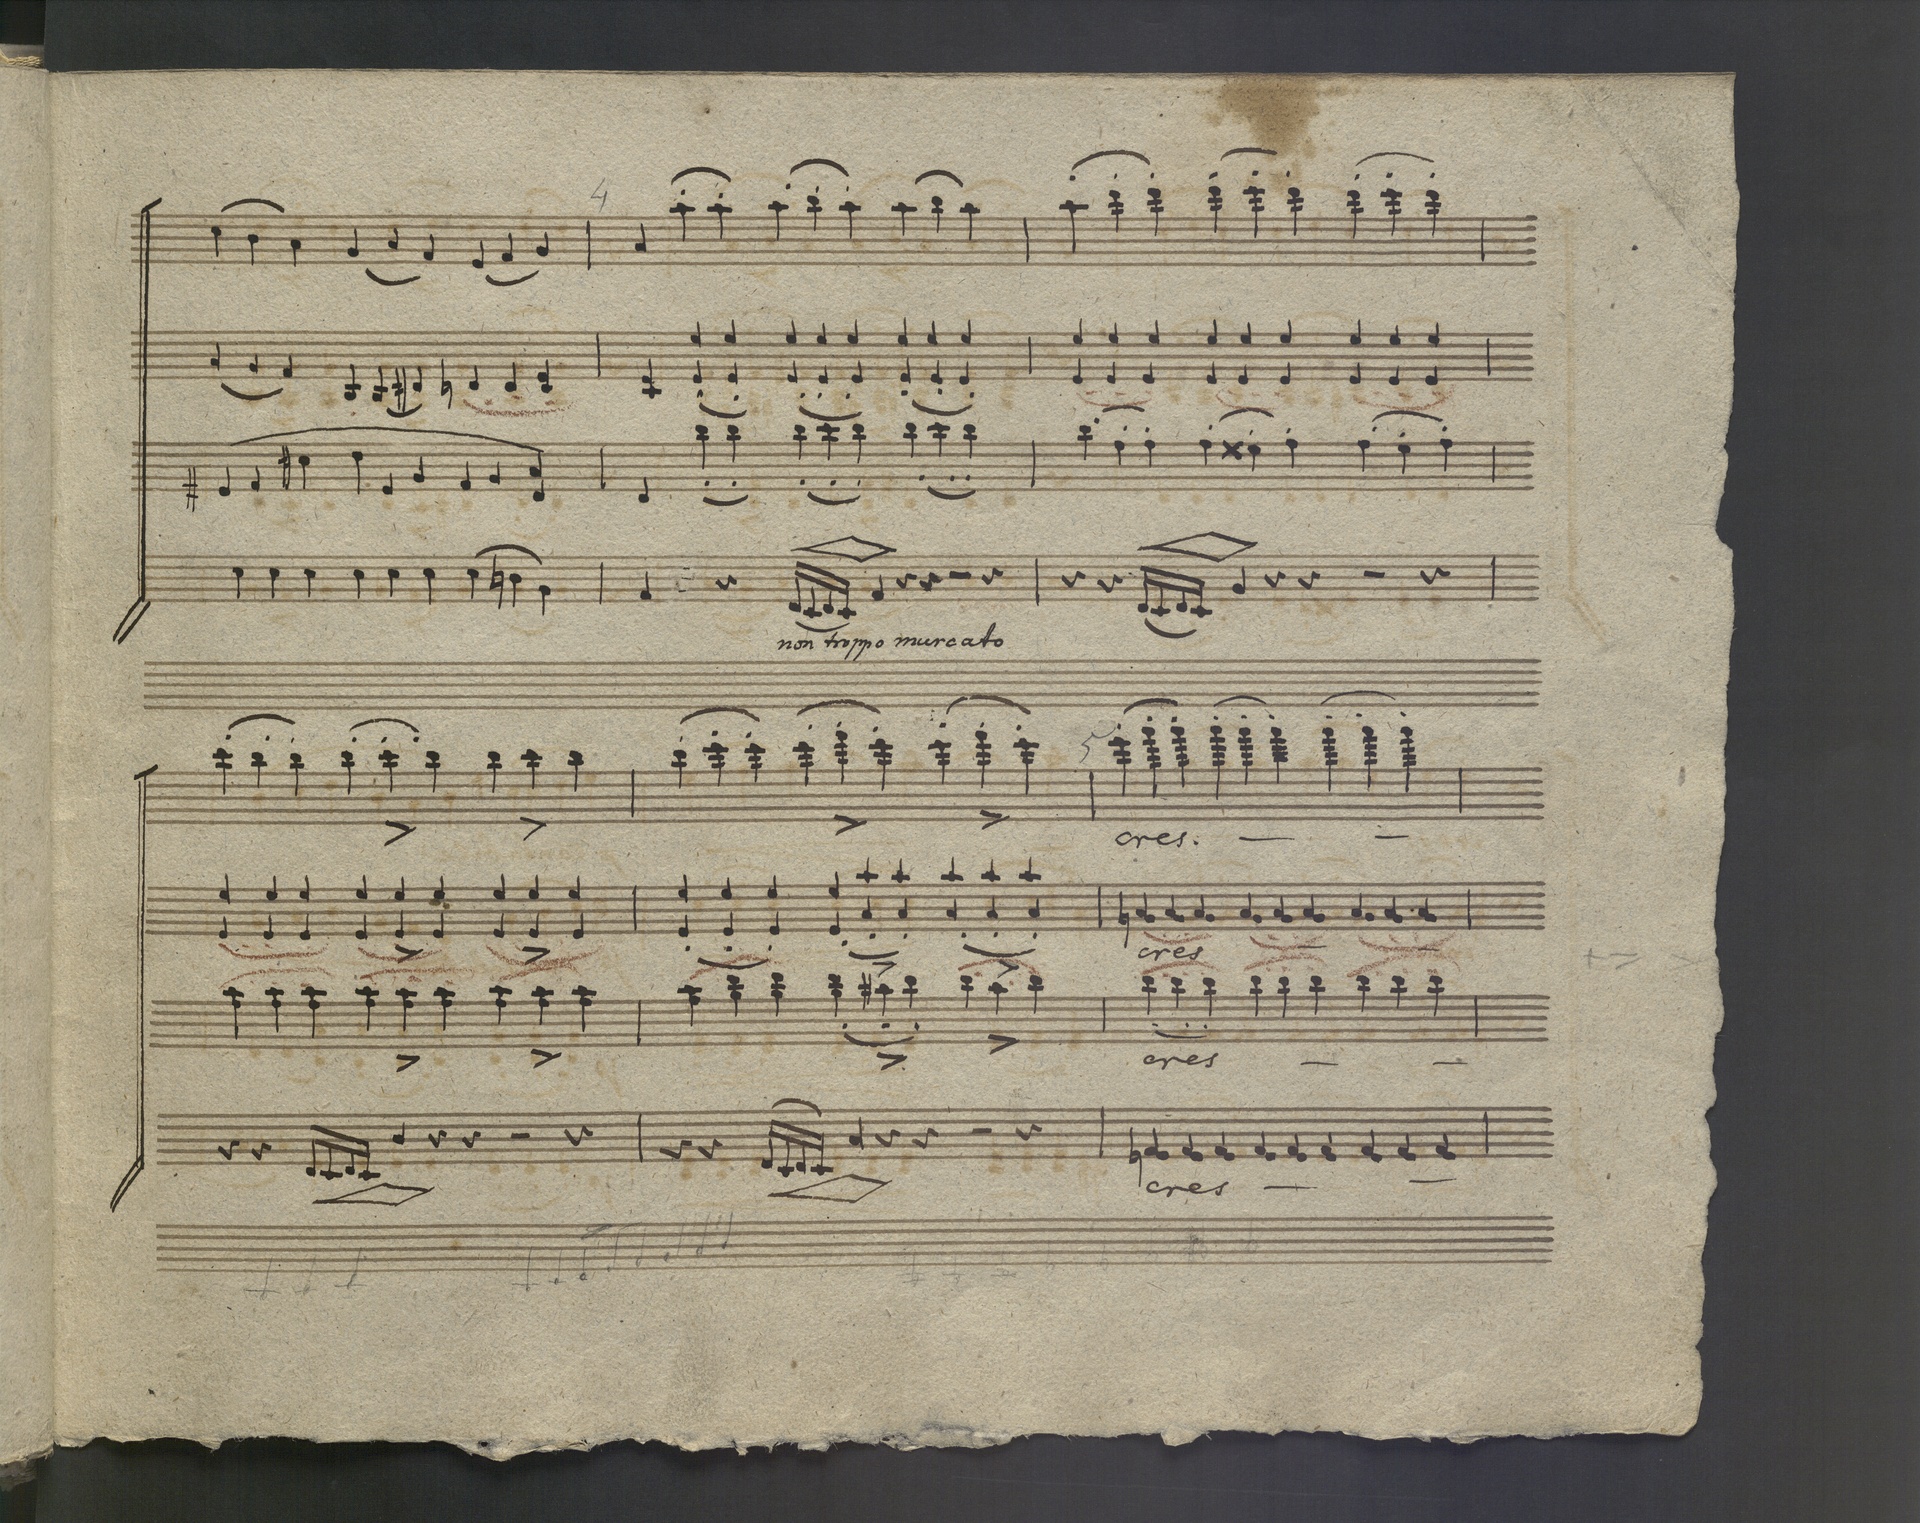 4
non troppo marcato
5
cres. — —
cres — —
cres — —
cres — —